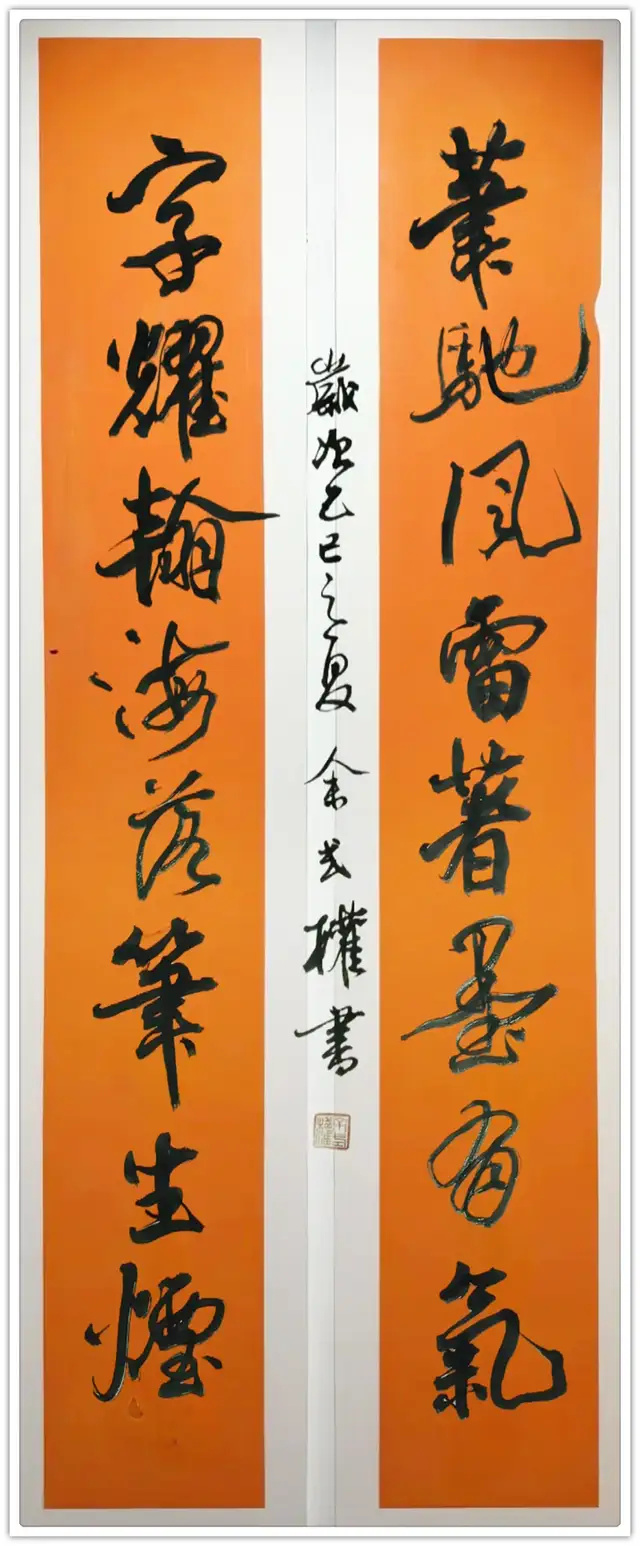 筆馳風雷著墨有氣
字耀翰海落筆生煙
歲次乙巳之夏 余武權書